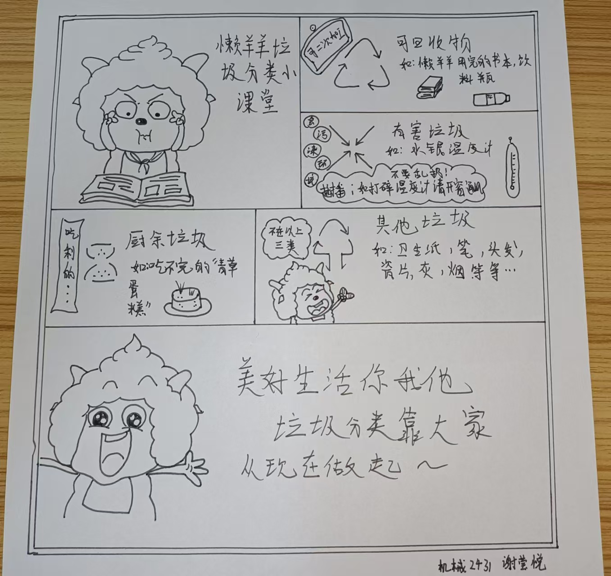 懒羊羊垃
圾分类小
课堂
第二次机会
可回收物
如:懒羊羊用完的书本,饮
料瓶
有害垃圾
如:水银温度计
不要乱扔!
插播:如打碎温度计请开窗通风
吃剩的...
厨余垃圾
如:吃不完的“青草
蛋
糕”
不在以上
三类
其他垃圾
如:卫生纸,笔,头发,
瓷片,灰,烟等等...
美好生活你我他
垃圾分类靠大家
从现在做起~
机械2431 谢莹悦